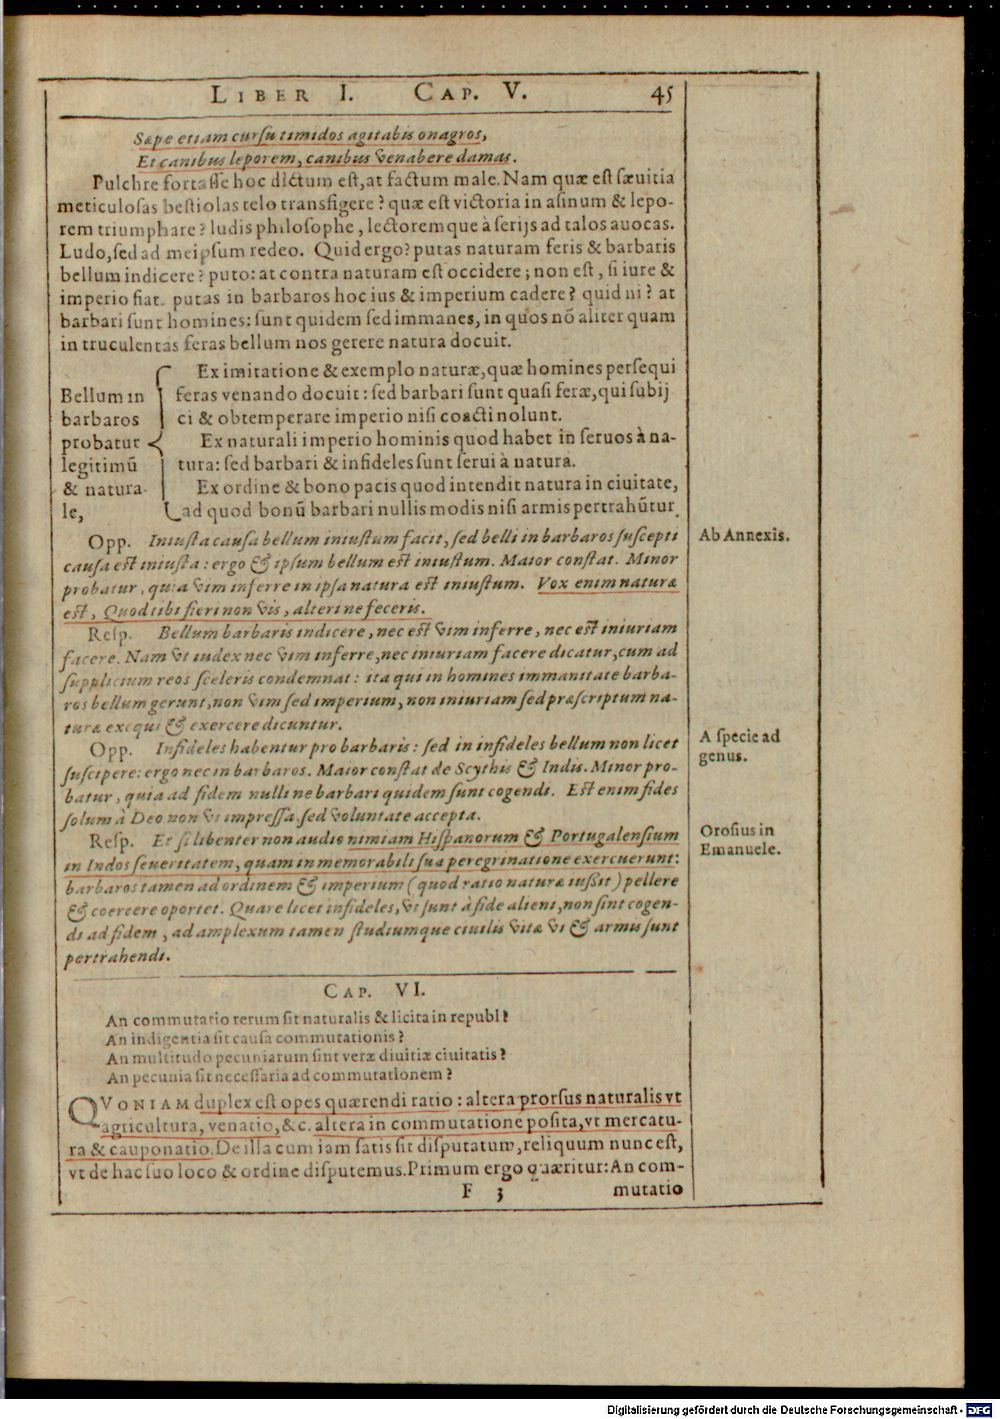 LIBER I. CAP. V. 45
Sæpe etiam cursu timidos agitabis onagros,
Et canibus leporem, canibus venabere damas.
Pulchre fortasse hoc dictum est, at factum male. Nam quæ est sæuitia
meticulosas bestiolas telo transfigere? quæ est victoria in asinum & lepo-
rem triumphare? ludis philosophe, lectoremque à serijs ad talos auocas.
Ludo, sed ad meipsum redeo. Quid ergo? putas naturam feris & barbaris
bellum indicere? puto: at contra naturam est occidere; non est, si iure &
imperio fiat. putas in barbaros hoc ius & imperium cadere? quid ni? at
barbari sunt homines: sunt quidem sed immanes, in quos nõ aliter quam
in truculentas feras bellum nos gerere natura docuit.
Bellum in
barbaros
probatur
legitimũ
& natura-
le,
Ex imitatione & exemplo naturæ, quæ homines persequi
feras venando docuit: sed barbari sunt quasi feræ, qui subij
ci & obtemperare imperio nisi coacti nolunt.
Ex naturali imperio hominis quod habet in seruos à na-
tura: sed barbari & infideles sunt serui à natura.
Ex ordine & bono pacis quod intendit natura in ciuitate,
ad quod bonũ barbari nullis modis nisi armis pertrahũtur.
Opp. Iniusta causa bellum iniustum facit, sed belli in barbaros suscepti
causa est iniusta: ergo & ipsum bellum est iniustum. Maior constat. Minor
probatur, quia vim inferre in ipsa natura est iniustum. Vox enim naturæ
est, Quod tibi fieri non vis, alteri ne feceris.
Ab Annexis.
Resp. Bellum barbaris indicere, nec est vim inferre, nec est iniuriam
facere. Nam vt iudex nec vim inferre, nec iniuriam facere dicatur, cum ad
supplicium reos sceleris condemnat: ita qui in homines immanitate barba-
ros bellum gerunt, non vim sed imperium, non iniuriam sed præscriptum na-
turæ exequi & exercere dicuntur.
Opp. Infideles habentur pro barbaris: sed in infideles bellum non licet
suscipere: ergo nec in barbaros. Maior constat de Scythis & Indis. Minor pro-
batur, quia ad fidem nulli ne barbari quidem sunt cogendi. Est enim fides
solum à Deo non vi impressa sed voluntate accepta.
A specie ad
genus.
Resp. Et si libenter non audio nimiam Hispanorum & Portugalensium
in Indos seueritatem, quam in memorabili sua peregrinatione exercuerunt:
barbaros tamen ad ordinem & imperium (quod ratio naturæ iußit) pellere
& coercere oportet. Quare licet infideles, vt sunt à fide alieni, non sint cogen-
di ad fidem, ad amplexum tamen studiumque ciuilis vitæ vi & armis sunt
pertrahendi.
Orosius in
Emanuele.
CAP. VI.
An commutatio rerum sit naturalis & licita in republ?
An indigentia sit causa commutationis?
An multitudo pecuniarum sint veræ diuitiæ ciuitatis?
An pecunia sit necessaria ad commutationem?
QVONIAM duplex est opes quærendi ratio: altera prorsus naturalis vt
agricultura, venatio, &c. altera in commutatione posita, vt mercatu-
ra & cauponatio. De illa cum iam satis sit disputatum, reliquum nunc est,
vt de hac suo loco & ordine disputemus. Primum ergo quæritur: An com-
F 3 mutatio
Digitalisierung gefördert durch die Deutsche Forschungsgemeinschaft - DFG